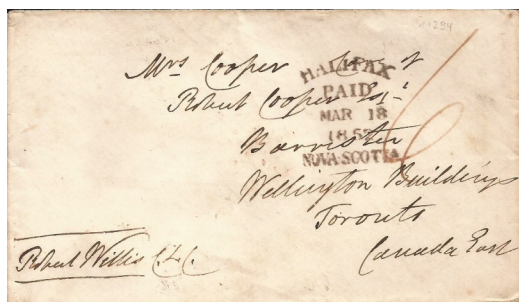 1294
Mrs Cooper Care of
Robert Cooper Esqr
Barrister
Wellington Buildings
Toronto
Canada East
HALIFAX
PAID
MAR 18
NOVA·SCOTIA
6
Robert Willis